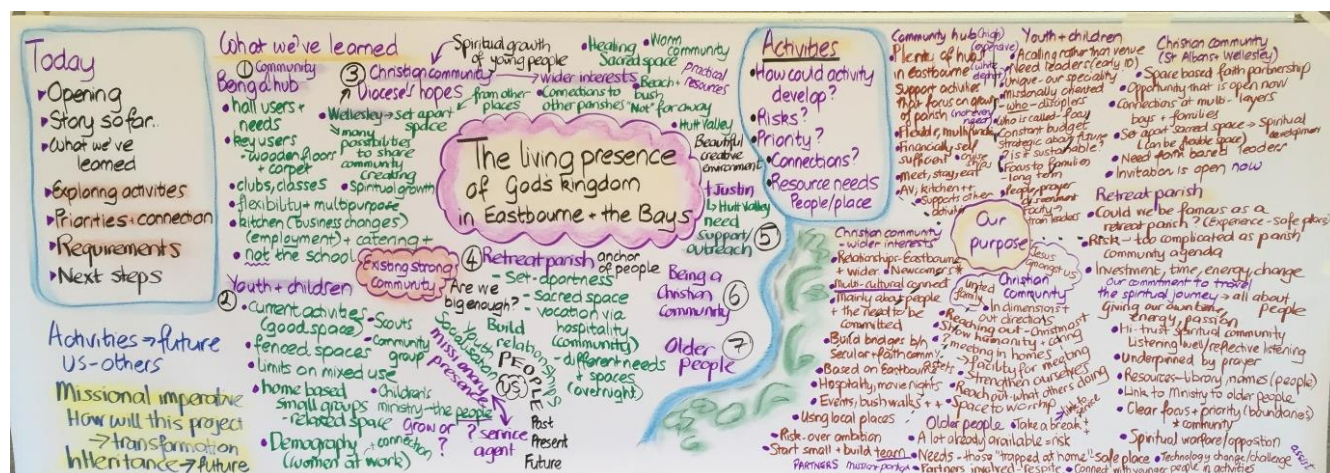 Today
Opening
Story so far..
What we've
learned
Exploring activities
Priorities + connection
Requirements
Next steps
Activities → future
us-others
Missional imperative
How will this project
→ transformation
Inheritance → future
What we've learned
① Community
Being a hub
• hall users +
needs
• Key users
- wooden floors
+ carpet
• clubs, classes
• flexibility + multipurpose
• kitchen (business changes)
(employment) + catering +
• not the school
Existing strong
community
② Youth + children
• current activities
(good space)
- Scouts
- Community
group
• fenced spaces
• limits on mixed use
• home based
small groups
- relaxed space
• Children's
ministry - the people
grow or
?
• Demography
(women at work)
+ connection
? service
agent
missionary
presence
③ Christian community
Diocese's hopes
Spiritual growth
of young people
→ wider interests
• Connections to
other parishes
from other
places
• Wellesley → set apart
space
many
possibilities
to share
community
creating
• Spiritual growth
• Healing
Sacred space
• Warm
community
• Beach +
bush
Practical
resources
• "Not" far away
• Hutt Valley
Beautiful
creative
environment
+ Justin
↳ Hutt Valley
need
support/
outreach
The living presence
of God's kingdom
in Eastbourne + the Bays
④ Retreat parish
anchor
of people
- Set-apartness
Are we
big enough?
- sacred space
- vocation via
hospitality
(community)
- different needs
+ spaces
(overnight)
Build
relationships
PEOPLE
US
Past
Present
Future
⑤
Being a
Christian
Community
⑥
Older
people
⑦
Activities
• How could activity
develop?
• Risks?
• Priority?
• Connections?
• Resource needs
People/place
Community hub (high)
Plenty of hub
in Eastbourne
(expensive)
(white
elephant)
Support activities
that focus on growth
of parish
(not every
night)
Flexible, multifunc
Financially self
sufficient
meet, stay, eat
AV, kitchen ++
Supports other
activities
Youth + children
• A calling rather than venue
• Need leaders (early ID)
• Unique - our speciality
• Missionally oriented
- who - disciplers
• Who is called - focus
Constant budget
Strategic about future
? is it sustainable?
• Focus to families
- long term
• People, prayer
discernment
Our
purpose
Jesus
amongst us
Christian community
(St Albans + Wellesley)
• Space based faith partnership
• Opportunity that is open now
• Connections at multi-layers
boys + families
• Set apart sacred space → Spiritual
development
(can be flexible space)
• Need faith based leaders
• Invitation is open now
Retreat parish
• Could we be famous as a
retreat parish? (Experience - safe place)
• Risk - too complicated as parish
community agenda
• Investment, time, energy, change
Our commitment to travel
the spiritual journey → all about
people
giving our own time,
energy, passion
• Hi-trust spiritual community
Listening well/reflective listening
• Underpinned by prayer
• Resources - library, names (people)
• Link to Ministry to older people
• Clear focus + priority (boundaries)
* community
• Spiritual warfare/opposition
• Technology change/challenge
assist
Christian community
- wider interests
• Relationships - Eastbourne
+ wider
• Newcomers*
• Multi-cultural connect
• Mainly about people
+ the need to be
committed
• Build bridges b/n
Secular + faith commy.
• Based on Eastbourne
• Hospitality, movie nights
• Events, bush walks ++
• Using local places
• Risk - over ambition
• Start small + build team
PARTNERS
Christian
community
united
family
• In dimensions +
out directions
• Reaching out - Christmas +
• Show humanity + caring
? meeting in homes
→ facility for meeting
• Strengthen ourselves
• Reach out - what others doing
• Space to worship
Older people
• Take a break +
• A lot already available = risk
→ link to
service
• Needs - those "trapped at home"
• Safe place
• Partners involved - despite
• Connect with younger people in activities